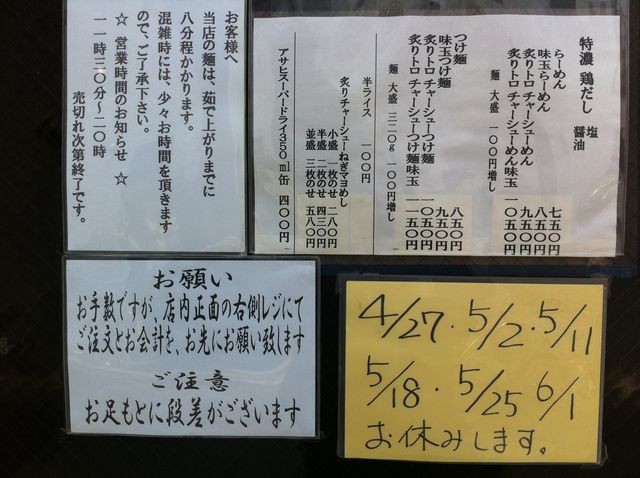 お客様へ
当店の麺は、茹で上がりまでに
八分程かかります。
混雑時には、少々お時間を頂きます
ので、ご了承下さい。
☆ 営業時間のお知らせ ☆
一一時三〇分〜二〇時
売切れ次第終了です。
特濃 鶏だし 塩 醤油
らーめん 七五〇円
味玉らーめん 八五〇円
炙りトロ チャーシューめん 九五〇円
炙りトロ チャーシューめん味玉 一〇五〇円
麺 大盛 一〇〇円増し
つけ麺 八五〇円
味玉つけ麺 九五〇円
炙りトロ チャーシューつけ麺 一〇五〇円
炙りトロ チャーシューつけ麺味玉 一一五〇円
麺 大盛 三二〇g 一〇〇円増し
半ライス 一〇〇円
炙りチャーシューねぎマヨめし
小盛 一枚のせ 二八〇円
半盛 二枚のせ 四三〇円
並盛 三枚のせ 五八〇円
アサヒスーパードライ350ml缶 四〇〇円
お願い
お手数ですが、店内正面の右側レジにて
ご注文とお会計を、お先にお願い致します
ご注意
お足もとに段差がございます
4/27・5/2・5/11
5/18・5/25 6/1
お休みします。